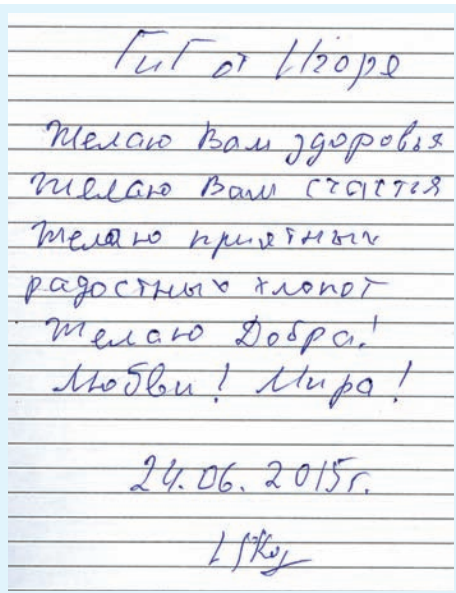 ГиГ от Игоря
Желаю Вам здоровья
Желаю Вам счастья
Желаю приятных
радостных хлопот
Желаю Добра!
Любви! Мира!
24.06.2015г.